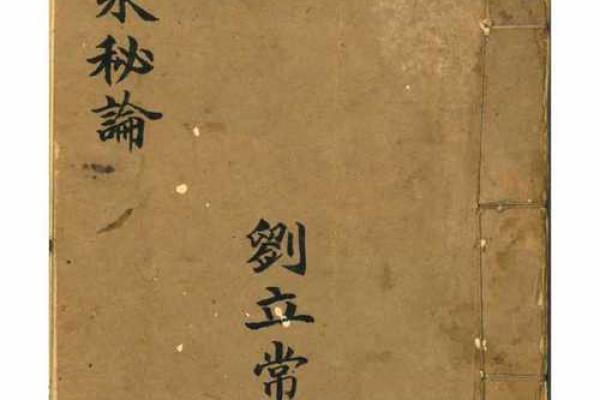 秘論
劉立常